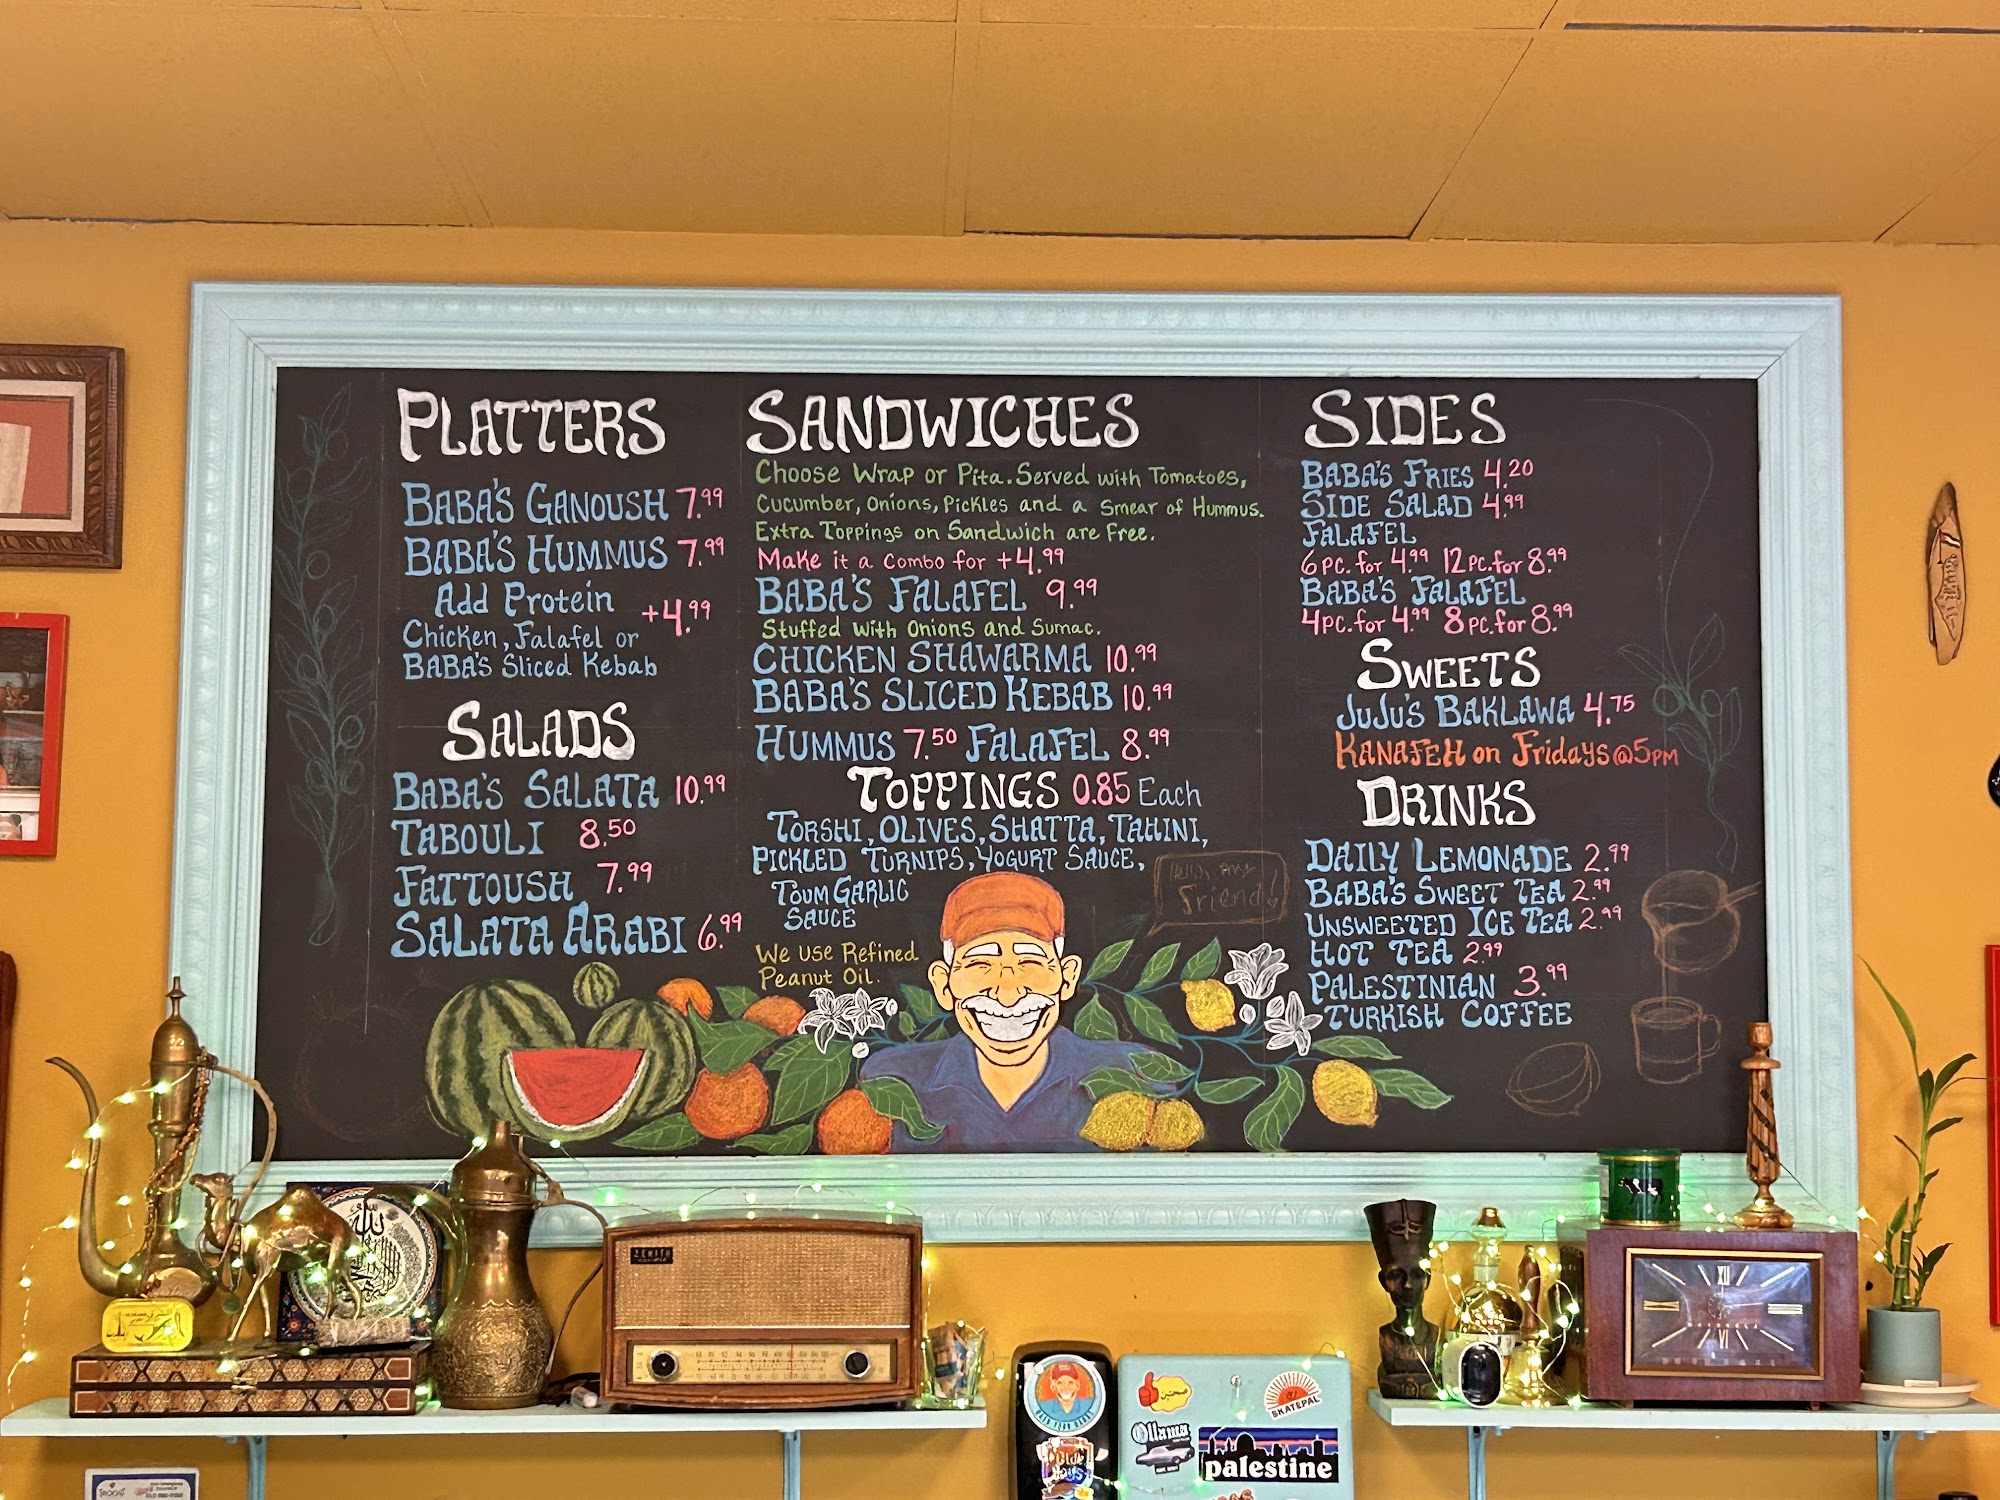 PLATTERS
BABA'S GANOUSH 7.99
BABA'S HUMMUS 7.99
Add Protein +4.99
Chicken, Falafel or
BABA'S Sliced Kebab
SALADS
BABA'S SALATA 10.99
TABOULI 8.50
FATTOUSH 7.99
SALATA ARABI 6.99
SANDWICHES
Choose Wrap or Pita. Served with Tomatoes,
Cucumber, Onions, Pickles and a Smear of Hummus.
Extra Toppings on Sandwich are Free.
Make it a Combo for +4.99
BABA'S FALAFEL 9.99
Stuffed with Onions and Sumac.
CHICKEN SHAWARMA 10.99
BABA'S SLICED KEBAB 10.99
HUMMUS 7.50 FALAFEL 8.99
TOPPINGS 0.85 Each
TORSHI, OLIVES, SHATTA, TAHINI,
PICKLED TURNIPS, YOGURT SAUCE,
TOUM GARLIC
SAUCE
We use Refined
Peanut Oil.
Hello my
Friend!
SIDES
BABA'S FRIES 4.20
SIDE SALAD 4.99
FALAFEL
6 PC. for 4.99 12 PC. for 8.99
BABA'S FALAFEL
4 PC. for 4.99 8 PC. for 8.99
SWEETS
JUJU'S BAKLAWA 4.75
KANAFEH on Fridays @ 5PM
DRINKS
DAILY LEMONADE 2.99
BABA'S SWEET TEA 2.99
UNSWEETED ICE TEA 2.99
HOT TEA 2.99
PALESTINIAN 3.99
TURKISH COFFEE
ZENITH
XII
VI
صحتين
SKATEPAL
palestine